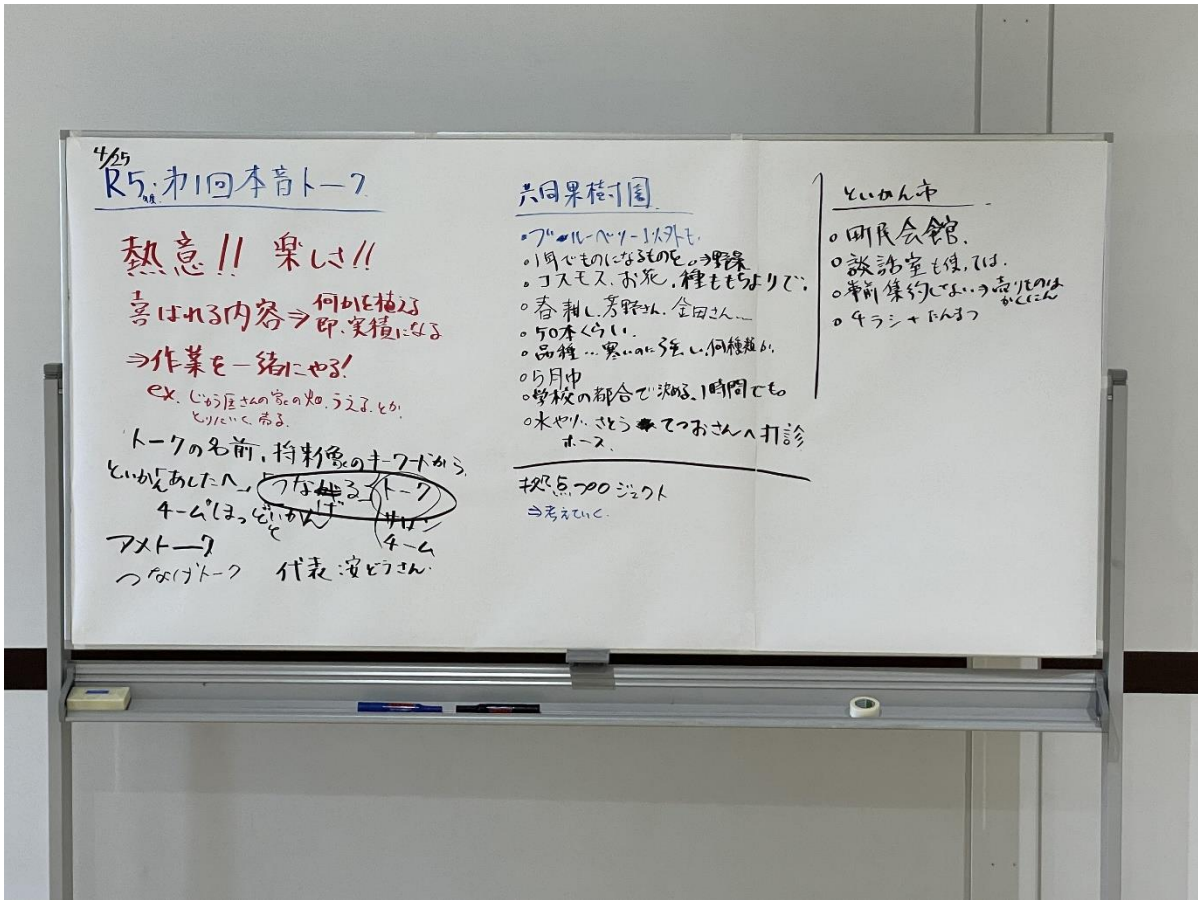 4/25
R5年度 第1回本音トーク
熱意!! 楽しさ!!
喜ばれる内容⇒何かを植える
即、実績になる
⇒作業を一緒にやる!
ex. じゅう屋さんの家の畑、うえる、とか
とりにいく、売る。
トークの名前、将来像のキーワードから
といかん「あしたへ」、「つなげる」トーク
チーム「ほっとといかん」
サロン
チーム
アメトーーク
つなげトーク 代表:安どうさん
共同果樹園
・ブルーベリー以外も
・1年でものになるものを。⇒野菜
・コスモス、お花、種ももちよりで。
・春耕し、芳野さん、金田さん…
・50本くらい。
・品種…寒いのに強い、何種類か。
・5月中
・学校の都合で決める、1時間でも。
・水やり…さとうてつおさんへ打診
ホース
拠点プロジェクト
⇒考えていく
といかん市
・町民会館。
・談話室も使っては。
・事前集約しない⇒売りものは
かくにん
・チラシ+たんまつ